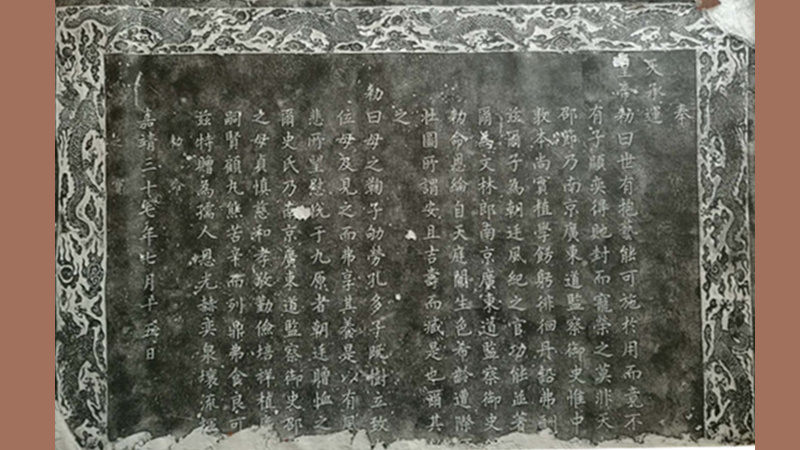 奉
天承運
皇帝勅曰世有抱藝能可施於用而竟不
有子顯奕得貤封而寵榮之莫非天
邵節乃南京廣東道監察御史惟中
敦本尚實植學飭躬徘徊丹鉛弗
茲爾子為朝廷風紀之官功能並著
爾為文林郎南京廣東道監察御史
勅命恩綸自天庭闈生色希齡遭際
壯圖所謂安且吉壽而臧是也爾其
之
勅曰母之鞠子劬勞孔多子既樹立致
位母及見之而弗享其養是以有風
悲所望慰悅于九原者朝廷贈恤之
爾史氏乃南京廣東道監察御史邵
之母貞慎慈和孝敬勤儉培祥植
嗣賢顧丸熊苦辛而列鼎弗食良可
茲特贈為孺人恩光赫奕泉壤流
勅命
嘉靖三十年七月五日
之寶